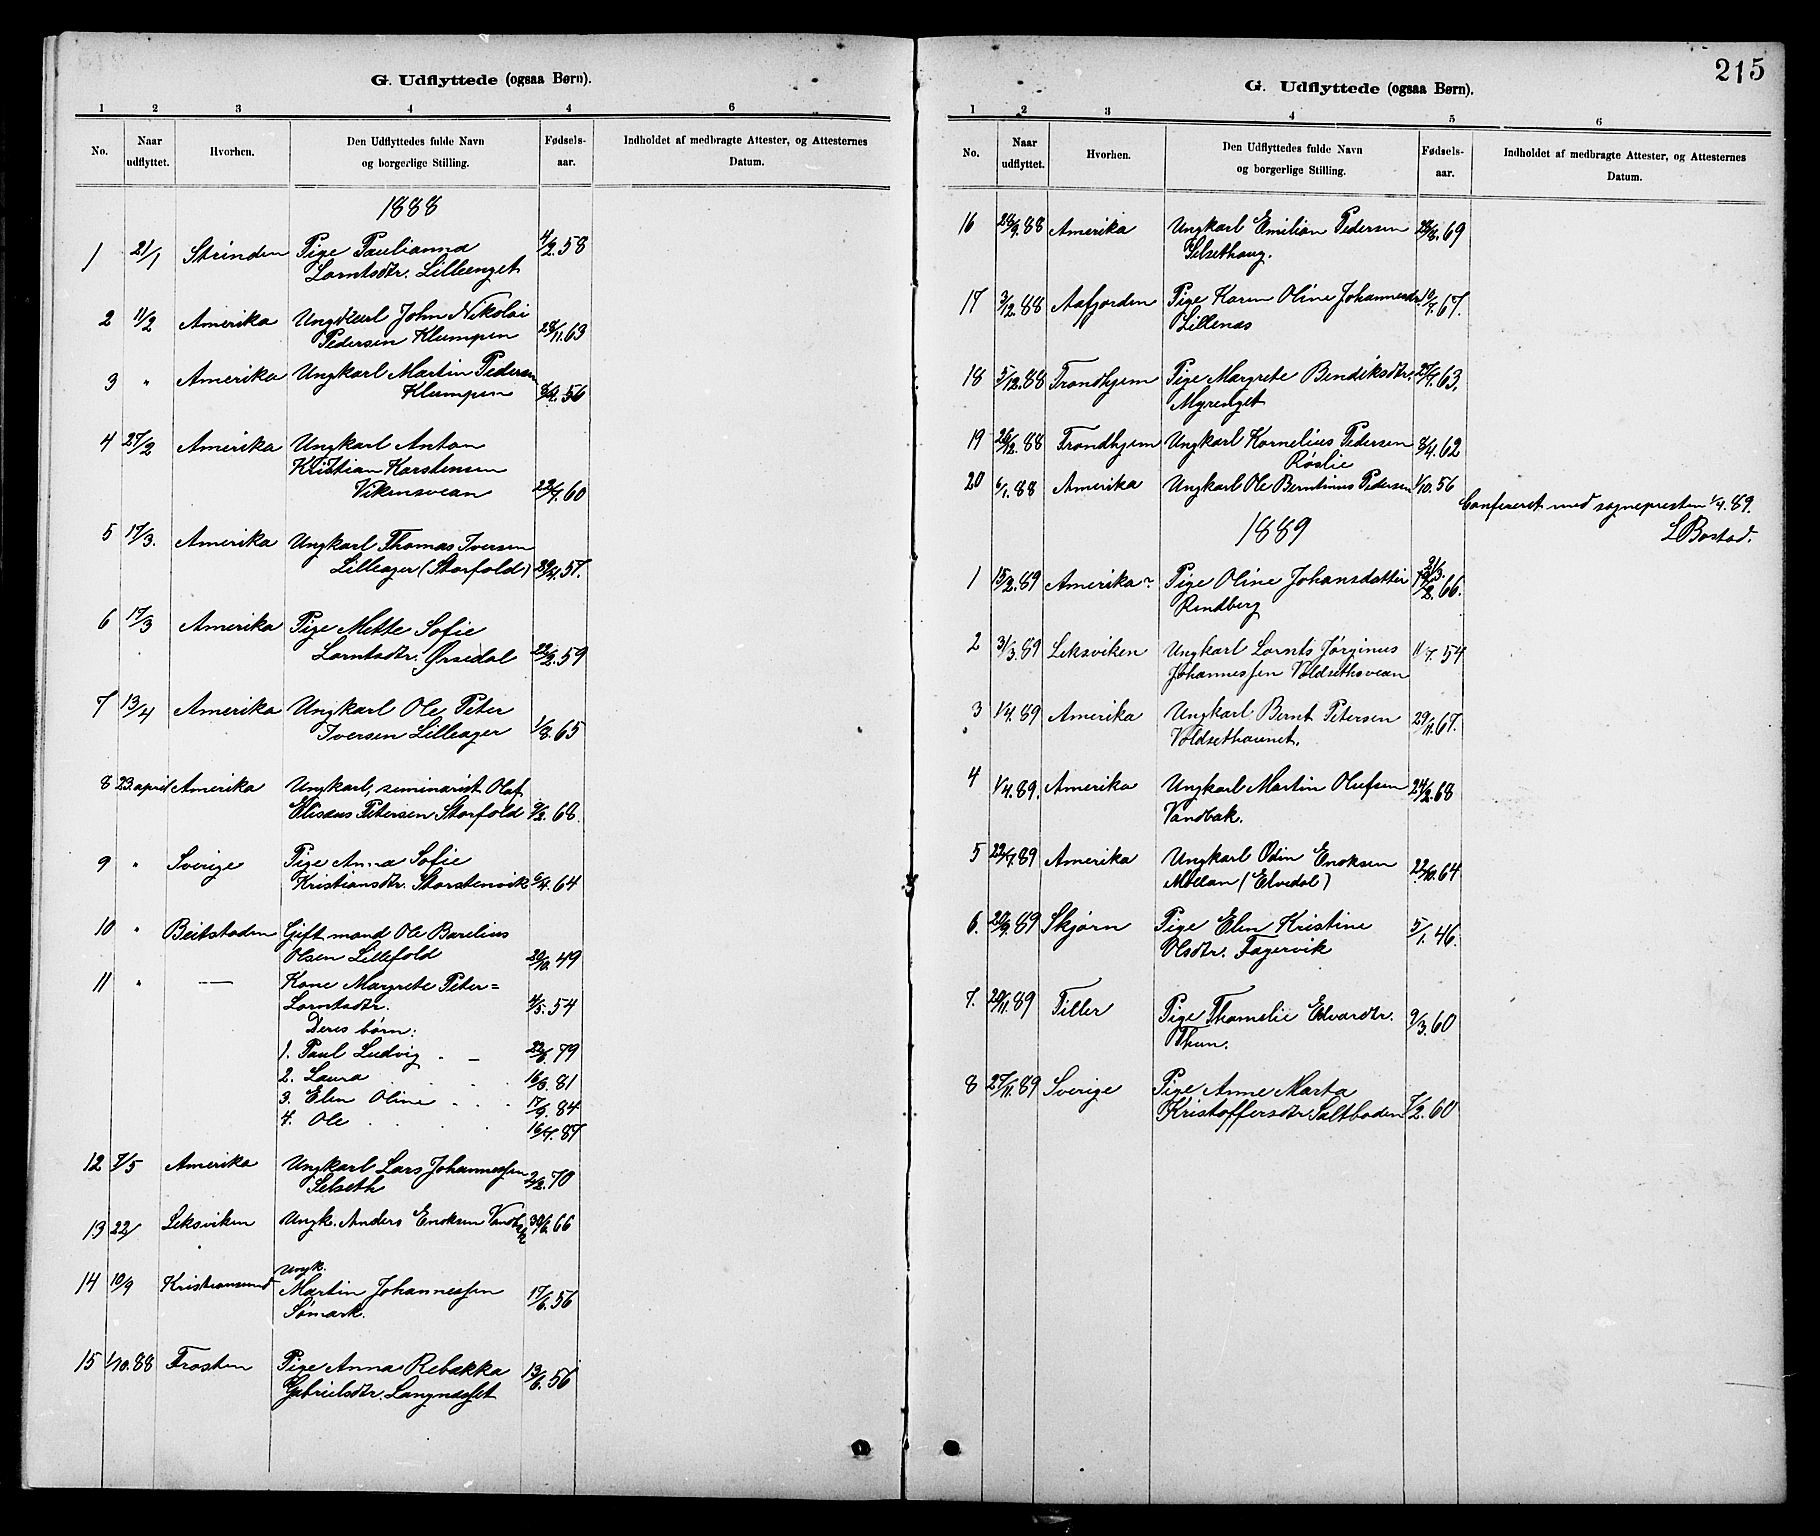 G. Udflyttede (ogsaa Børn).
1 2 3 4 4 6
No. Naar udflyttet. Hvorhen. Den Udflyttedes fulde Navn og borgerlige Stilling. Fødsels-aar. Indholdet af medbragte Attester, og Attesternes Datum.
1888
1 21/1 Strinden Pige Paulianna 4/2.58
Lorntsdtr. Lilleenget
2 11/2 Amerika Ungkarl John Nikolai
Pedersen Klumpen 28/11.63
3 " Amerika Ungkarl Martin Pedersen
Klumpen .56
4 27/2 Amerika Ungkarl Anton
Kristian Karstensen
Vikensvean 22/7.60
5 17/3. Amerika Ungkarl Thomas Iversen
Lilleager (Storfold) 29/4.57.
6 17/3 Amerika Pige Mette Sofie
Lorntsdtr. Ørsedal 22/2.59
7 13/4 Amerika Ungkarl Ole Peter
Iversen Lilleager 1/8.65
8 23. april Amerika Ungkarl, seminarist Olaf
Elisæus Petersen Storfold 9/2.68.
9 " Sverige Pige Anna Sofie
Kristiansdtr. Storstenvik 6/4.64
10 " Beitstaden Gift mand Ole Barelius
Olsen Lillefold 20/10.49
11 " — Kone Margrete Peter=
Lorntsdtr. 4/5.54
Deres børn:
1. Paul Ludvig . – 22/6.79
2. Laura . . . . 16/3.81
3. Elen Oline . . . 17/9.84
4. Ole . . . . 16/7.87
12 7/5 Amerika Ungkarl Lars Johannessen
Selseth 2/2.70
13 22/ Leksviken Ungk. Anders Enoksen Vandbak 30/6.66
14 10/9 Kristiansund Ungk.
Martin Johannessen
Sømark. 17/6.56
15 1/10.88 Frosten Pige Anna Rebækka
Gabrielsdtr. Langnæsset 13/6.56
215
G. Udflyttede (ogsaa Børn).
1 2 3 4 5 6
No. Naar udflyttet. Hvorhen. Den Udflyttedes fulde Navn og borgerlige Stilling. Fødsels-aar. Indholdet af medbragte Attester, og Attesternes Datum.
16 28/9.88 Amerika Ungkarl Emilian Pedersen 28/8.69
Selsethaug.
17 3/12.88 Aafjorden Pige Karen Oline Johannesdr. 10/7.67.
Lillenæs
18 5/12.88 Trondhjem Pige Margrete Bendiksdtr. 27/7.63.
Myrenget
19 26/12.88 Trondhjem Ungkarl Kornelius Pedersen 8/4.62
Røslie
20 6/1.88 Amerika Ungkarl Ole Berntinus Pedersen 1/10.56
Confereret med sognepresten 1/4.89.
L Bostad.
1889
1 15/2.89 Amerika Pige Oline Johansdatter .66.
Rindberg
2 31/3.89 Leksviken Ungkarl Lornts Jørginus 11/7.54
Johannessen Voldsethsvean
3 1/4.89 Amerika Ungkarl Bernt Petersen 29/11.67.
Voldsethaunet.
4 1/4.89. Amerika Ungkarl Martin Olufsen 24/2.68
Vandbak.
5 22/7.89 Amerika Ungkarl Odin Enoksen 22/10.64
Moean (Elvedal)
6. 20/9.89 Skjørn Pige Elen Kristine 5/1.46.
Olsdtr. Fagervik
7. 20/11.89 Tiller Pige Thomelie Edvardtr. 9/3.60
Thun.
8 27/11.89 Sverige Pige Anne Marta
Kristoffersdtr. Saltboden 7/2.60